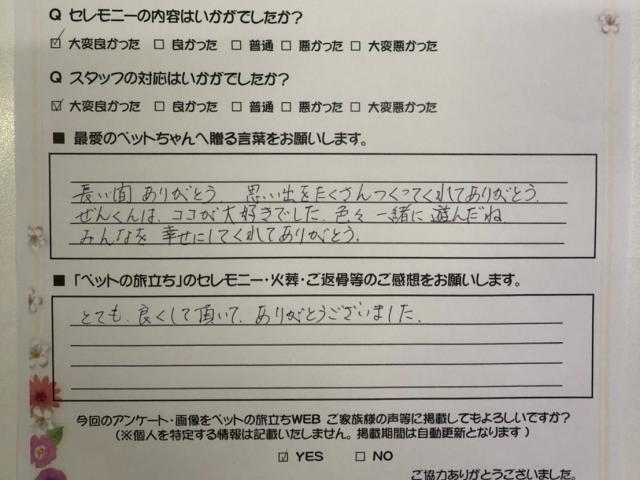 Q セレモニーの内容はいかがでしたか?
☑ 大変良かった □ 良かった □ 普通 □ 悪かった □ 大変悪かった
Q スタッフの対応はいかがでしたか?
☑ 大変良かった □ 良かった □ 普通 □ 悪かった □ 大変悪かった
■ 最愛のペットちゃんへ贈る言葉をお願いします。
長い間 ありがとう. 思い出をたくさんつくってくれてありがとう.
ぜんくんは、ココが大好きでした. 色々 一緒に 遊んだね.
みんなを 幸せにしてくれてありがとう.
■ 「ペットの旅立ち」のセレモニー・火葬・ご返骨等のご感想をお願いします。
とても. 良くして頂いて、ありがとうございました.
今回のアンケート・画像をペットの旅立ちWEB ご家族様の声等に掲載してもよろしいですか?
(※個人を特定する情報は記載いたしません。掲載期間は自動更新となります)
☑ YES □ NO
ご協力ありがとうございました。